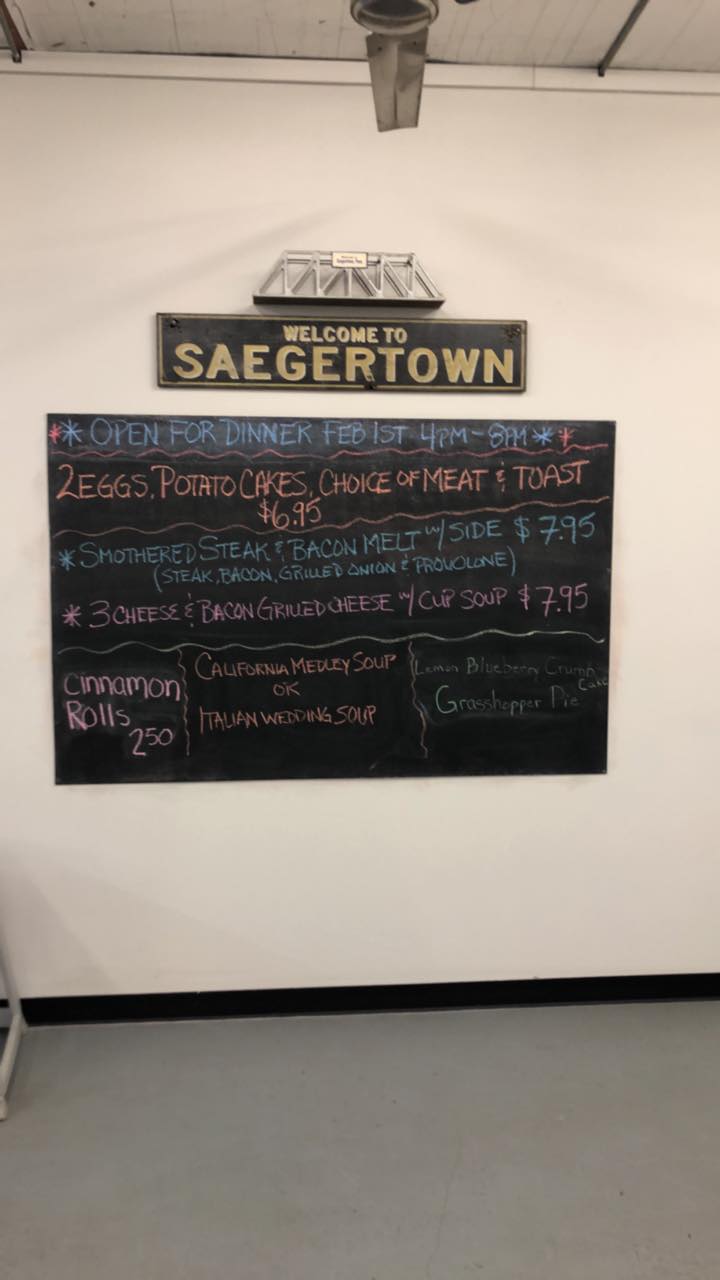 WELCOME TO
SAEGERTOWN
** OPEN FOR DINNER FEB 1ST 4PM - 8PM **
2 EGGS, POTATO CAKES, CHOICE OF MEAT & TOAST
$6.95
* SMOTHERED STEAK & BACON MELT W/ SIDE $7.95
(STEAK, BACON, GRILLED ONION & PROVOLONE)
* 3 CHEESE & BACON GRILLED CHEESE W/ CUP SOUP $7.95
Cinnamon
Rolls
2.50
CALIFORNIA MEDLEY SOUP
OR
ITALIAN WEDDING SOUP
Lemon Blueberry Crumb
Cake
Grasshopper Pie